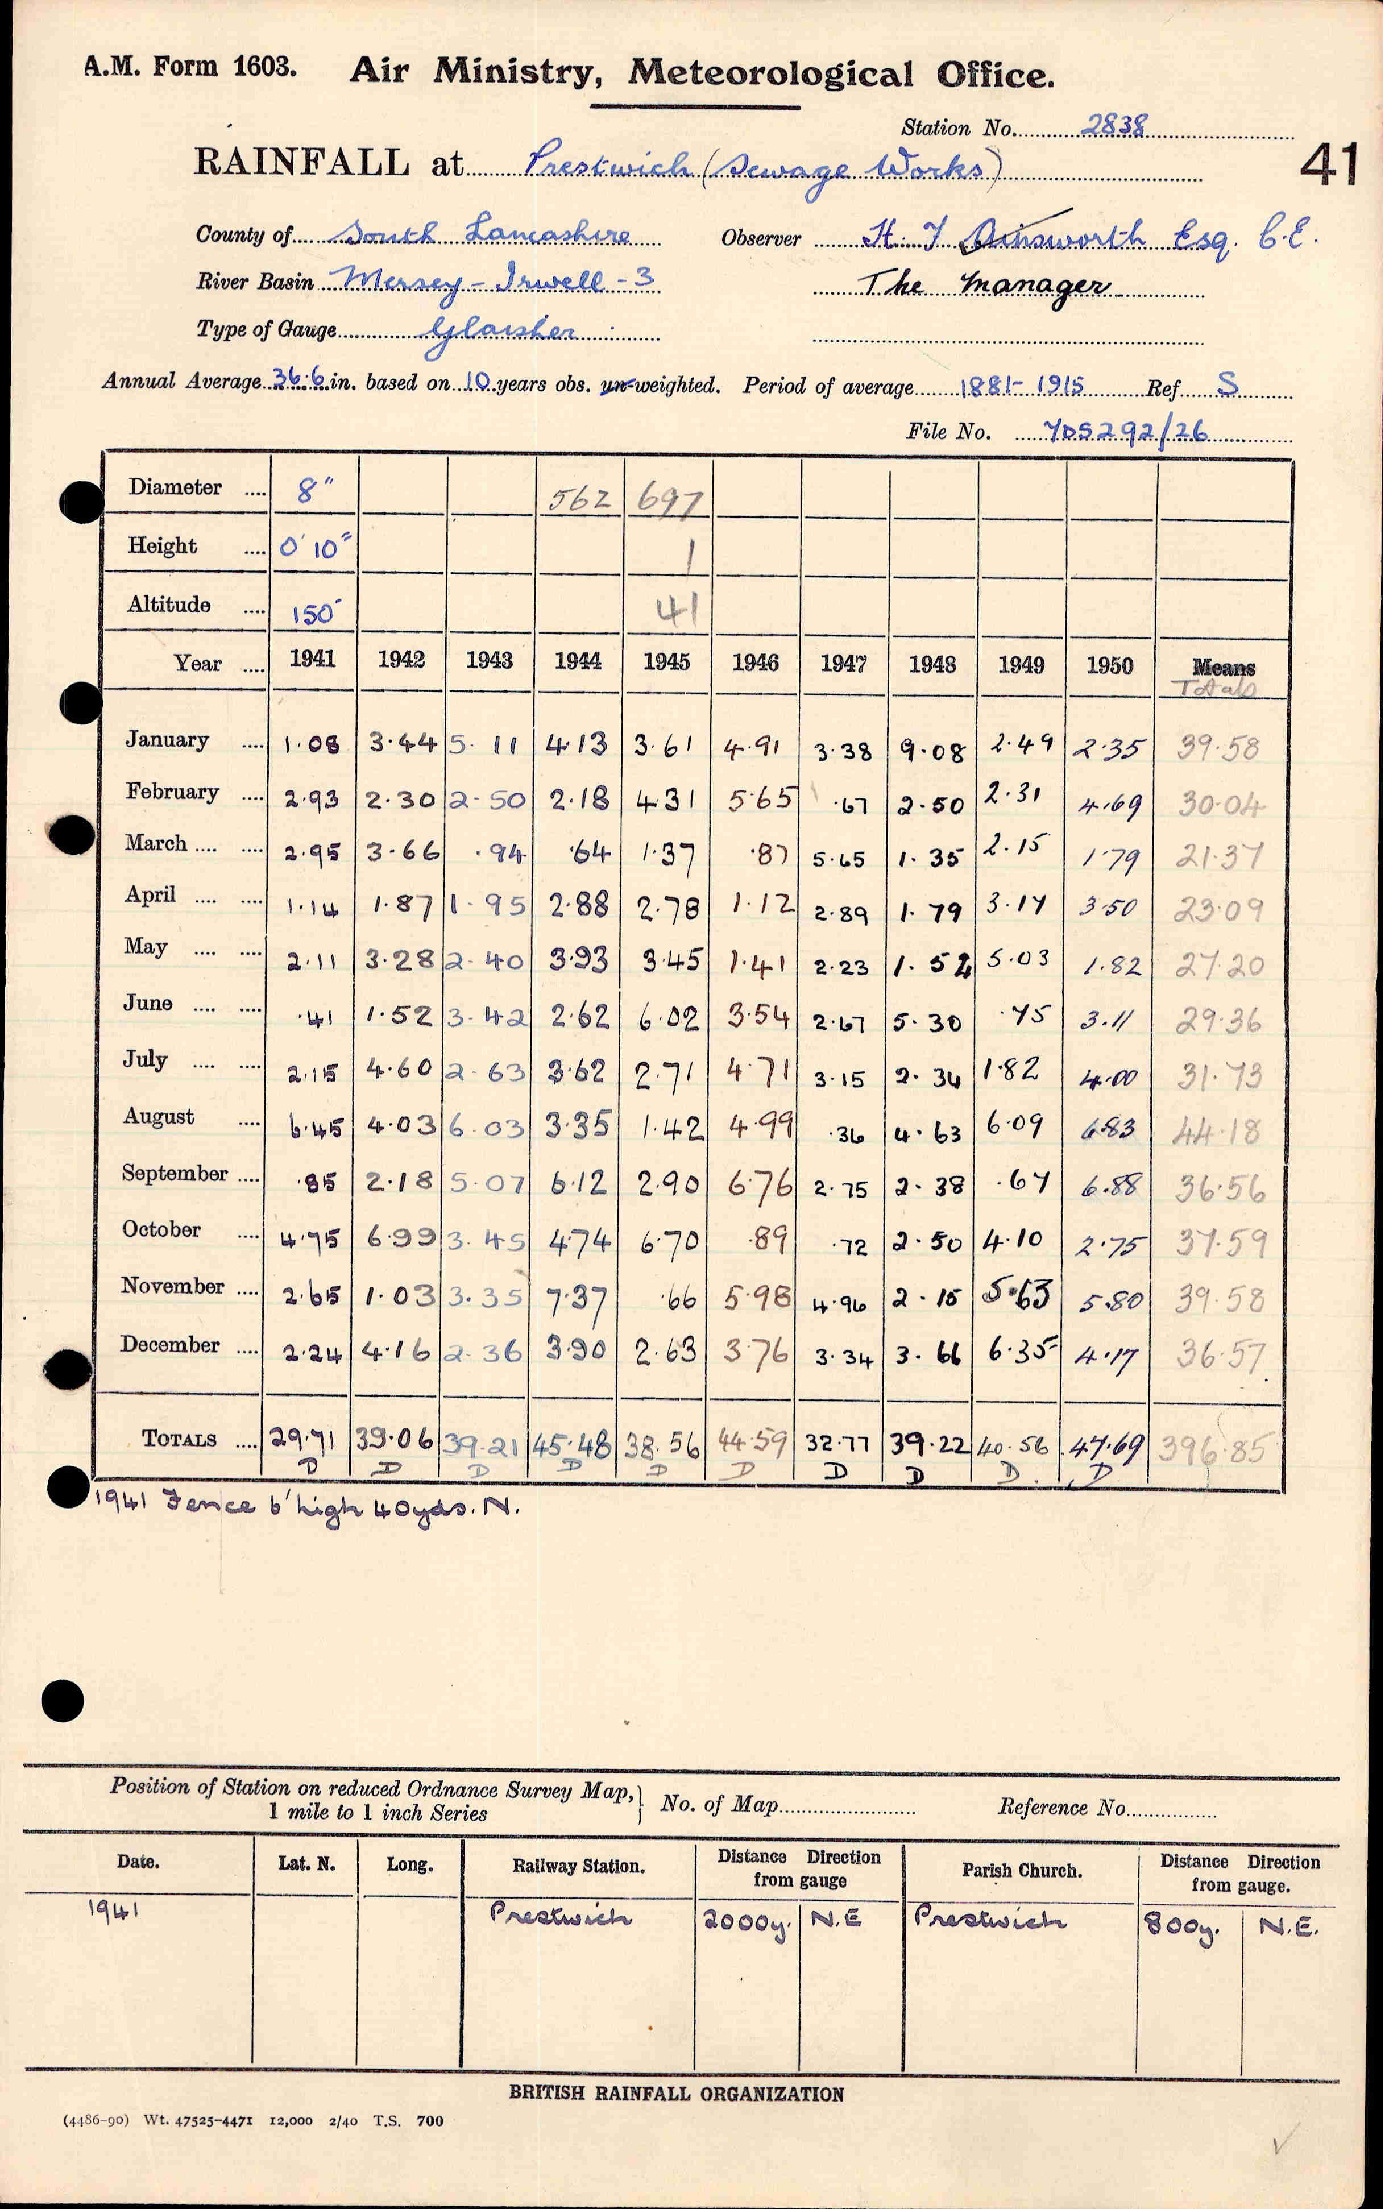 A.M. Form 1603. Air Ministry, Meteorological Office.
Station No. 2838
RAINFALL at Prestwich (Sewage Works) 41
County of South Lancashire Observer H. J Ainsworth Esq. C.E.
River Basin Mersey - Irwell - 3 The Manager
Type of Gauge Glaisher
Annual Average 36.6 in. based on 10 years obs. un-weighted. Period of average 1881-1915 Ref S
File No. 7DS292/26
Diameter .... 8" 562 697
Height .... 0' 10" 1
Altitude .... 150' 41
Year .... 1941 1942 1943 1944 1945 1946 1947 1948 1949 1950 Means
Totals
January .... 1.08 3.44 5.11 4.13 3.61 4.91 3.38 9.08 2.49 2.35 39.58
February .... 2.93 2.30 2.50 2.18 4.31 5.65 .67 2.50 2.31 4.69 30.04
March .... .... 2.95 3.66 .94 .64 1.37 .87 5.65 1.35 2.15 1.79 21.37
April .... .... 1.14 1.87 1.95 2.88 2.78 1.12 2.89 1.79 3.17 3.50 23.09
May .... .... 2.11 3.28 2.40 3.93 3.45 1.41 2.23 1.54 5.03 1.82 27.20
June .... .... .41 1.52 3.42 2.62 6.02 3.54 2.67 5.30 .75 3.11 29.36
July .... .... 2.15 4.60 2.63 3.62 2.71 4.71 3.15 2.34 1.82 4.00 31.73
August .... 6.45 4.03 6.03 3.35 1.42 4.99 .36 4.63 6.09 6.83 44.18
September .... .85 2.18 5.07 6.12 2.90 6.76 2.75 2.38 .67 6.88 36.56
October .... 4.75 6.99 3.45 4.74 6.70 .89 .72 2.50 4.10 2.75 37.59
November .... 2.65 1.03 3.35 7.37 .66 5.98 4.96 2.15 5.63 5.80 39.58
December .... 2.24 4.16 2.36 3.90 2.63 3.76 3.34 3.66 6.35 4.17 36.57
TOTALS .... 29.71 39.06 39.21 45.48 38.56 44.59 32.77 39.22 40.56 47.69 396.85
D D D D D D D D D D
1941 Fence 6' high 40yds. N.
Position of Station on reduced Ordnance Survey Map,
1 mile to 1 inch Series } No. of Map Reference No.
Date. Lat. N. Long. Railway Station. Distance Direction from gauge Parish Church. Distance Direction from gauge.
1941 Prestwich 2000y. N.E Prestwich 800y. N.E.
BRITISH RAINFALL ORGANIZATION
(4486-90) Wt. 47525-4471 12,000 2/40 T.S. 700